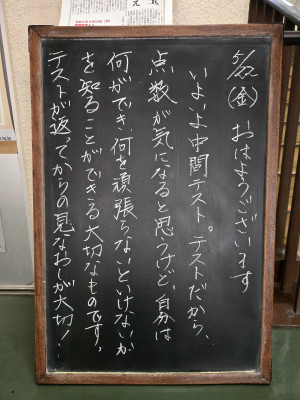 5/22(金) おはようございます
いよいよ中間テスト。テストだから、
点数が気になると思うけど、自分は
何ができ、何を頑張らないといけないか
を知ることができる大切なものです。
テストが返ってからの見なおしが大切!